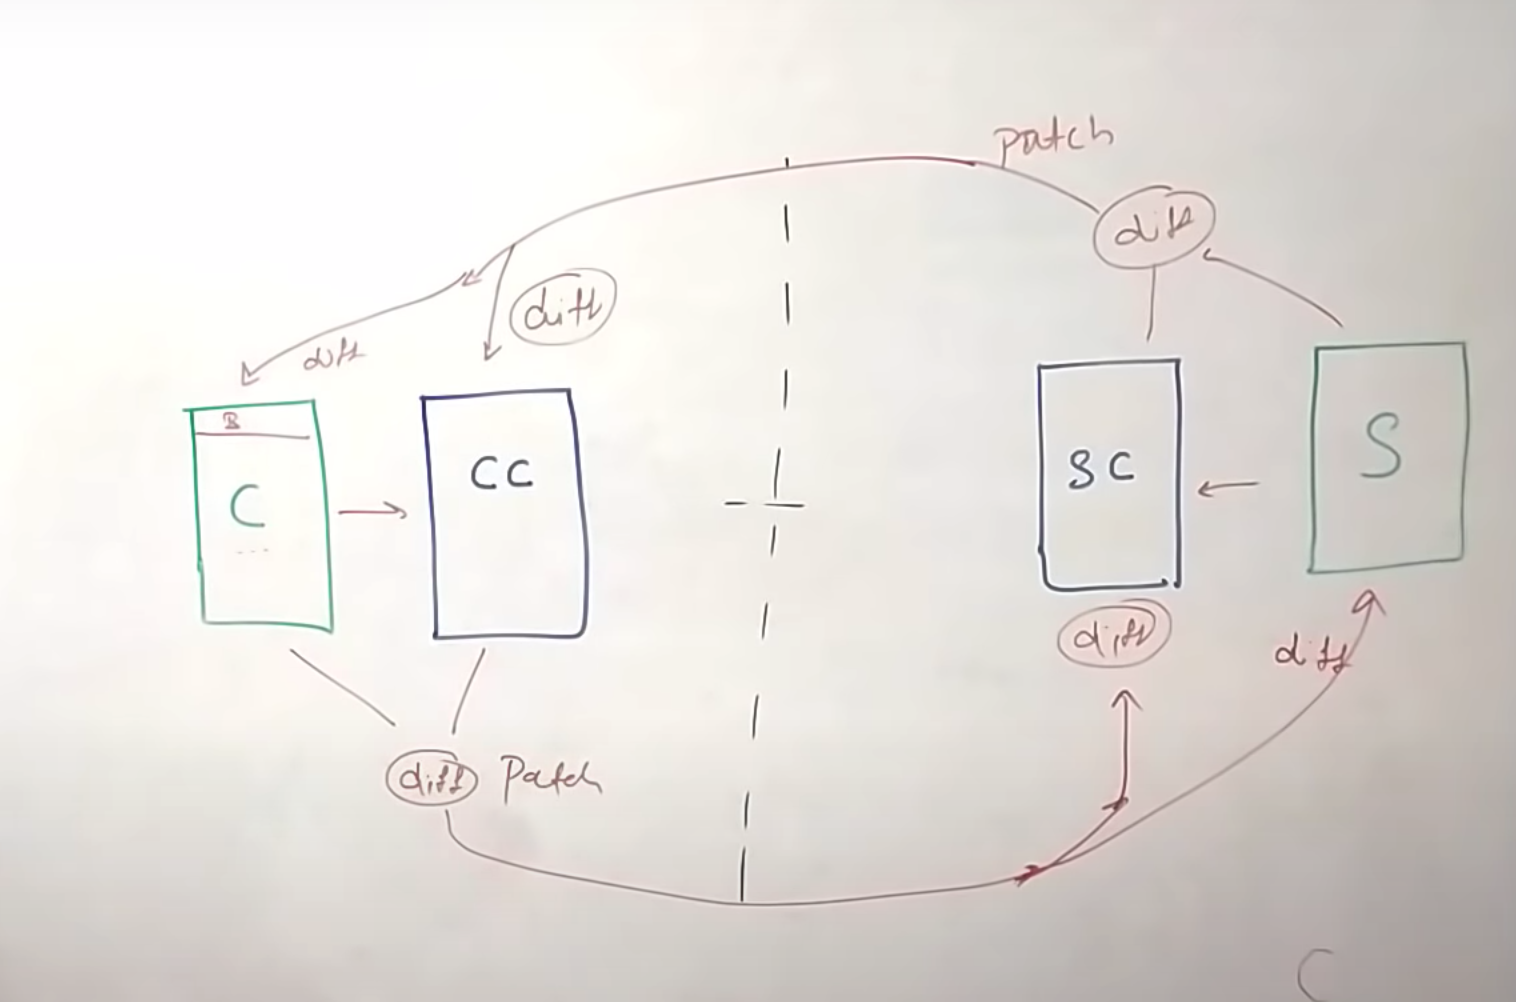 patch
diff
diff
diff
B
C
CC
SC
S
diff
diff
diff Patch
C